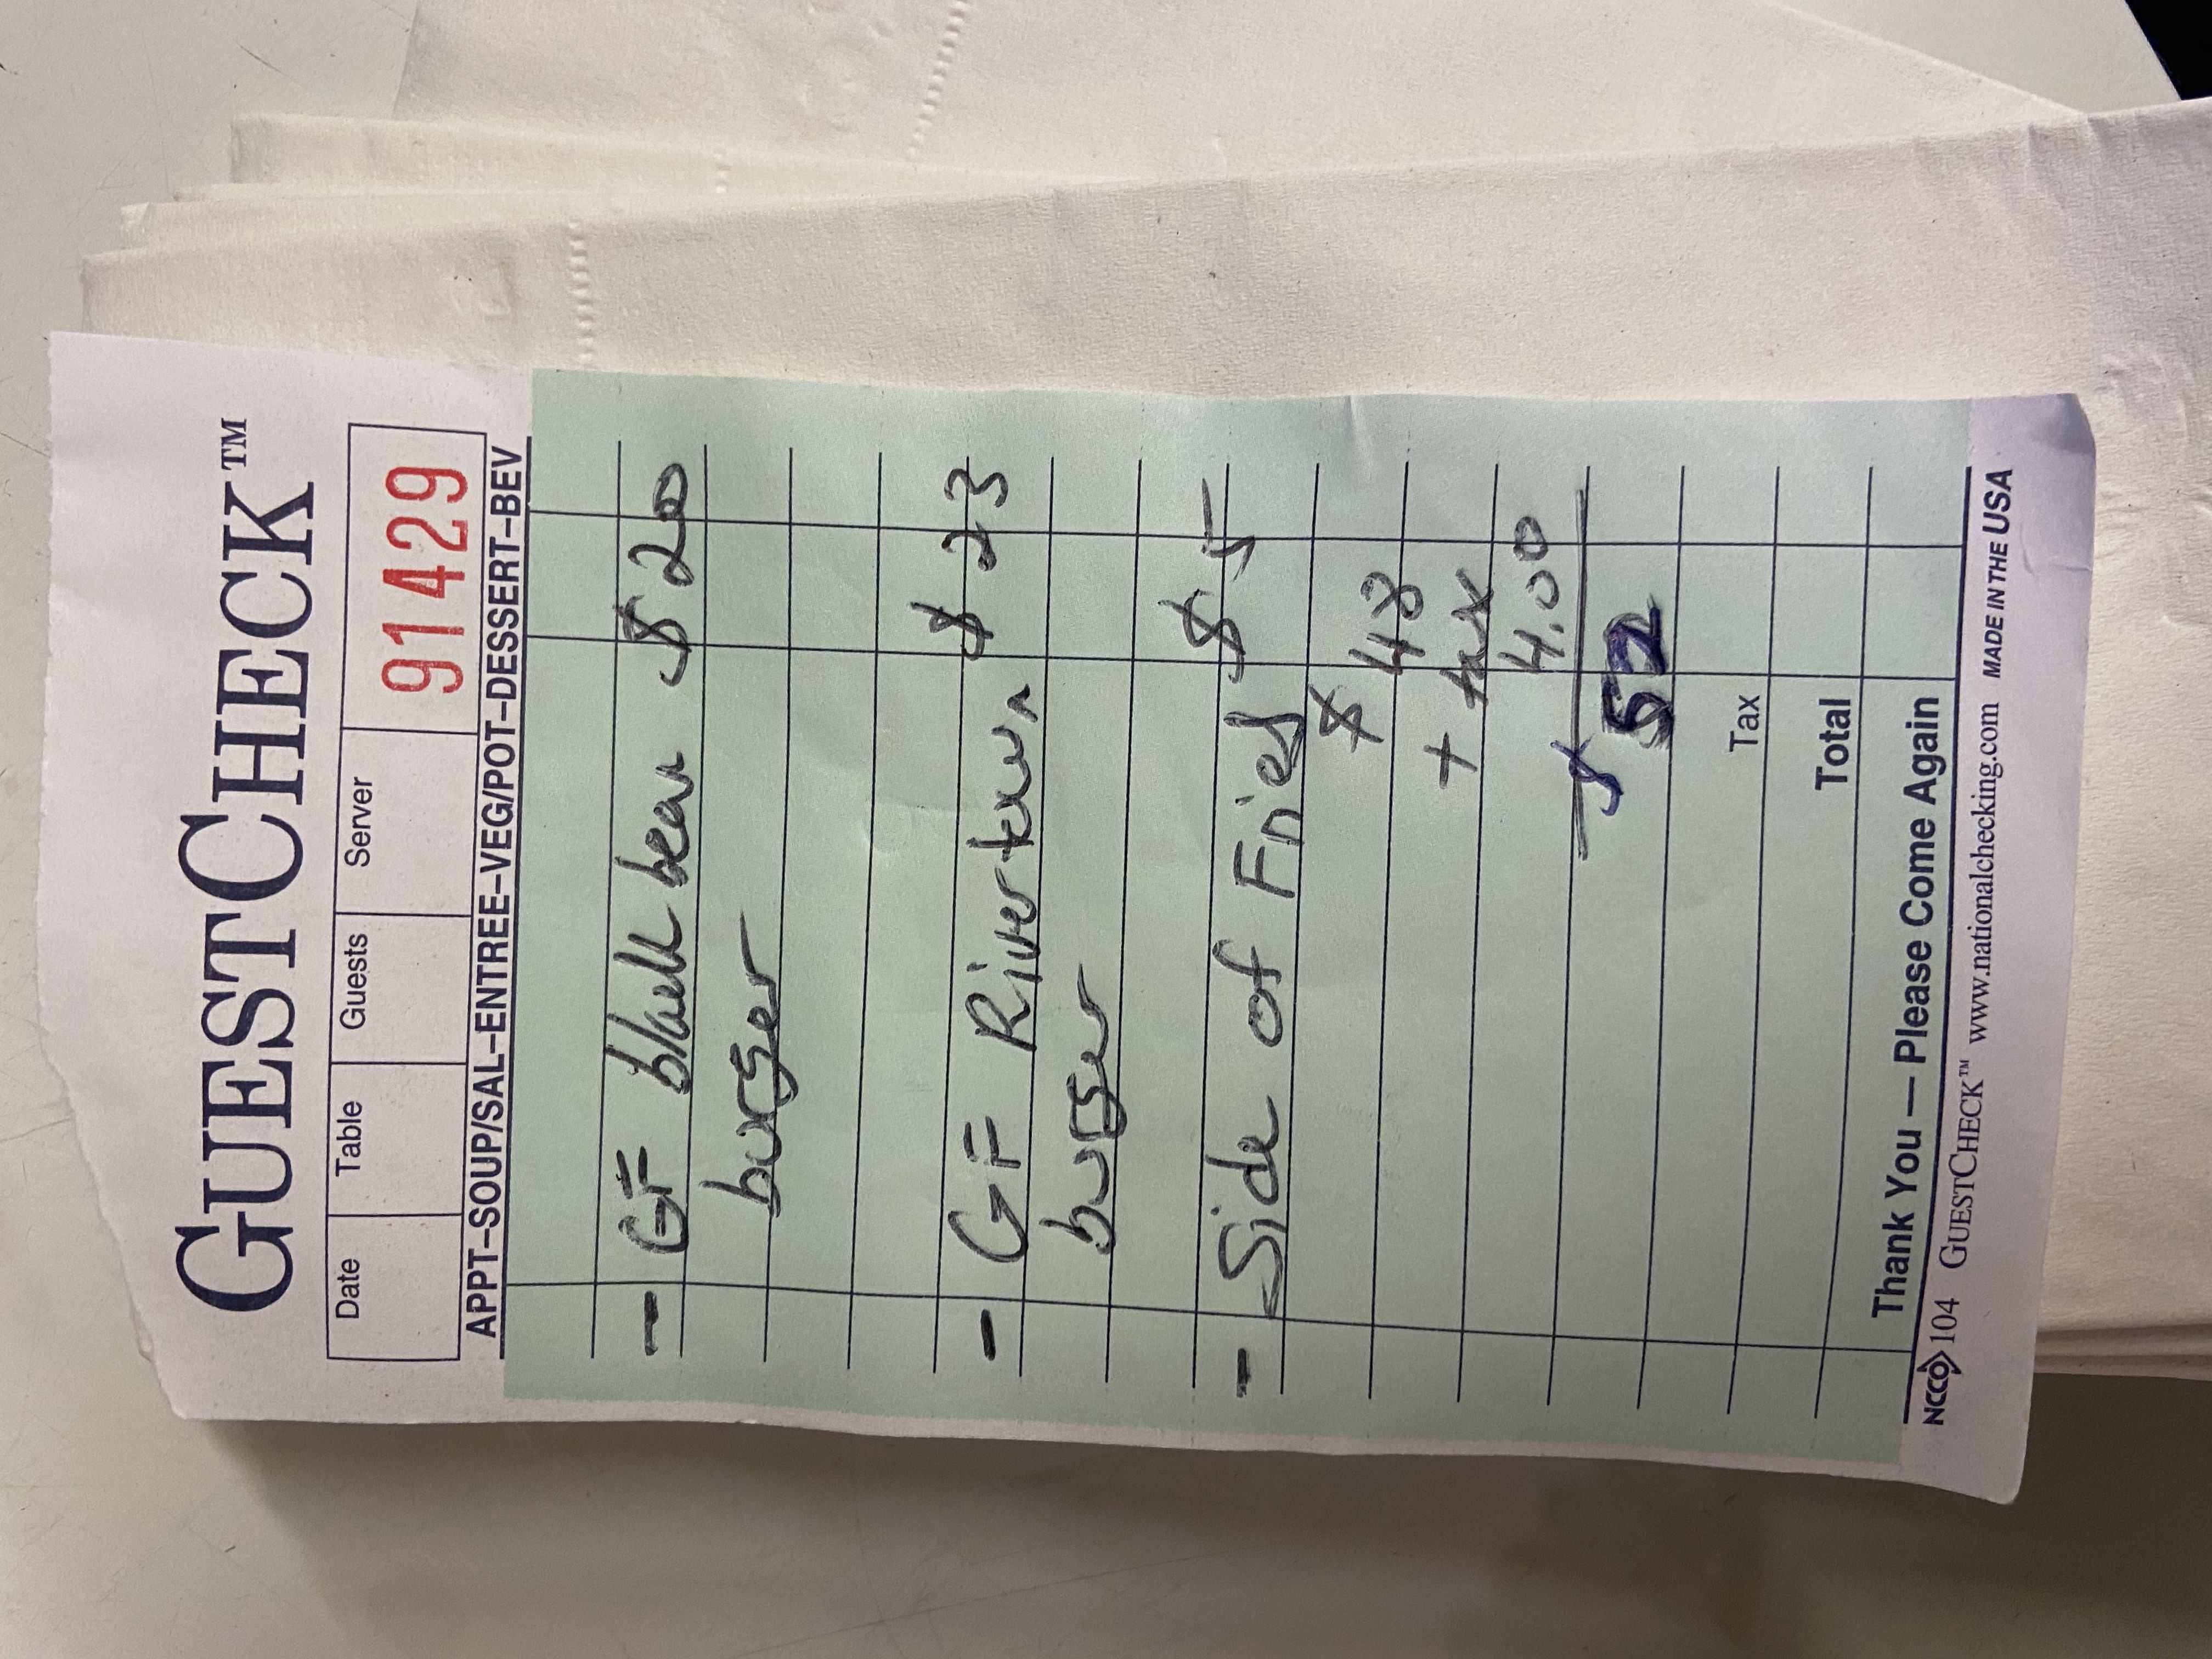 GUESTCHECK™
Date Table Guests Server
91429
APPT–SOUP/SAL–ENTREE–VEG/POT–DESSERT–BEV
- GF black bean $20
burger
- GF Rivertown $23
burger
- Side of Fries $5
$48
+ tax
4.00
$52
Tax
Total
Thank You — Please Come Again
NCCO 104 GUESTCHECK™ www.nationalchecking.com MADE IN THE USA